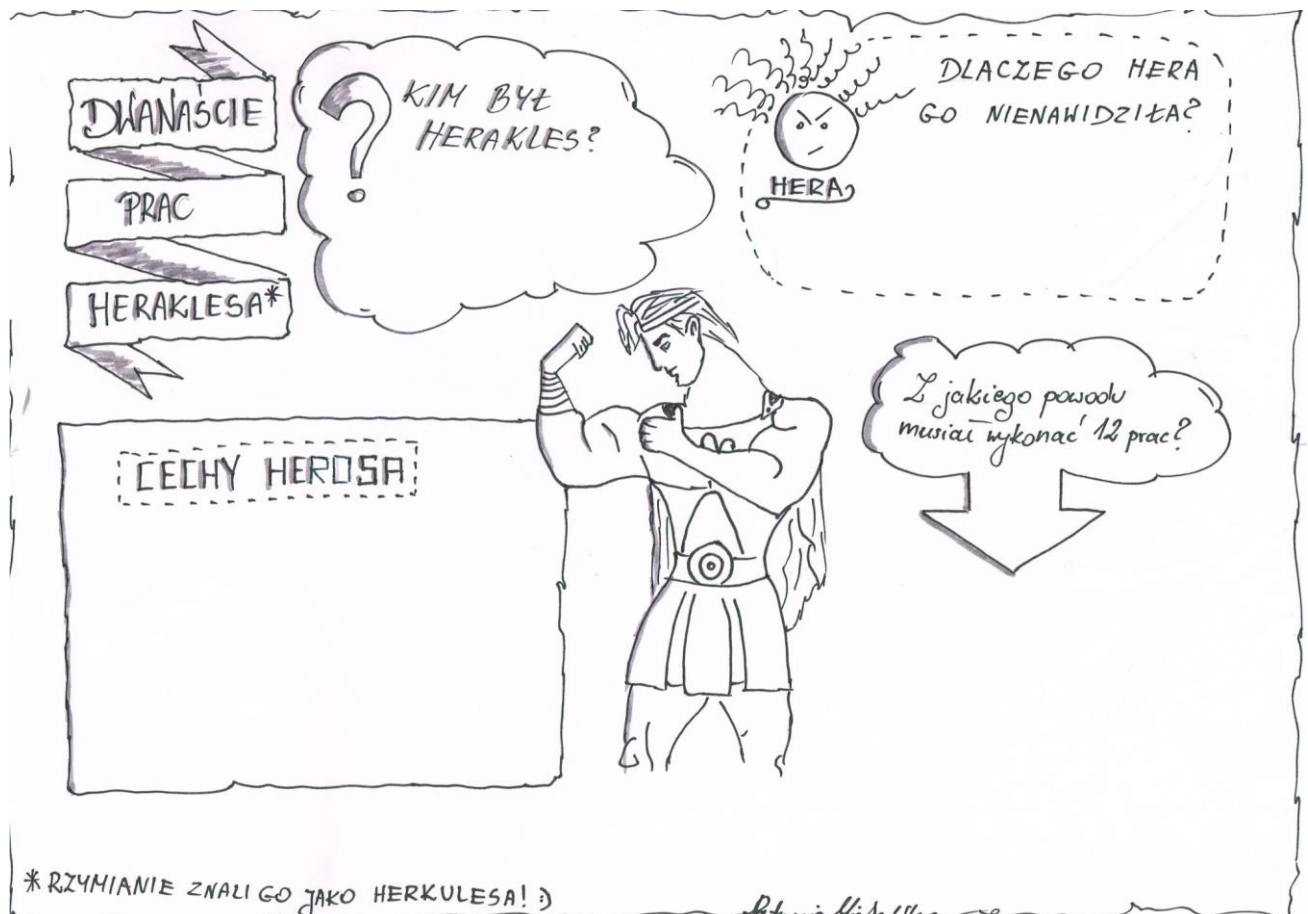 DWANAŚCIE
PRAC
HERAKLESA*
?
KIM BYŁ
HERAKLES?
DLACZEGO HERA
GO NIENAWIDZIŁA?
HERA
Z jakiego powodu
musiał wykonać 12 prac?
CECHY HEROSA
* RZYMIANIE ZNALI GO JAKO HERKULESA! :)